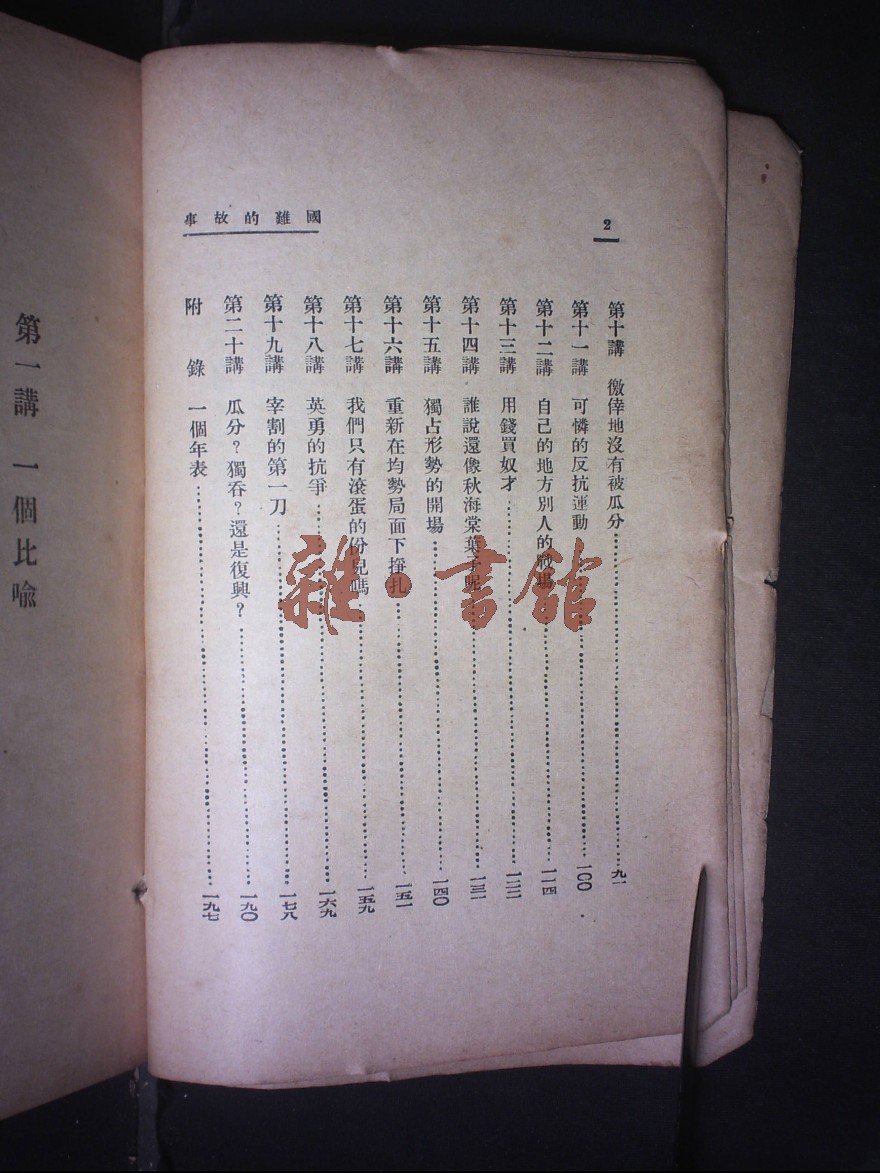 2
國難的故事
第十講 徼倖地沒有被瓜分……九一
第十一講 可憐的反抗運動……一〇〇
第十二講 自己的地方別人的戰場……一一四
第十三講 用錢買奴才……一二二
第十四講 誰說還像秋海棠葉子呢……一三一
第十五講 獨占形勢的開場……一四〇
第十六講 重新在均勢局面下掙扎……一五一
第十七講 我們只有滾蛋的份兒嗎……一五九
第十八講 英勇的抗爭……一六九
第十九講 宰割的第一刀……一七八
第二十講 瓜分?獨吞?還是復興?……一九〇
附錄 一個年表……一九七
第一講 一個比喻
雜·書館